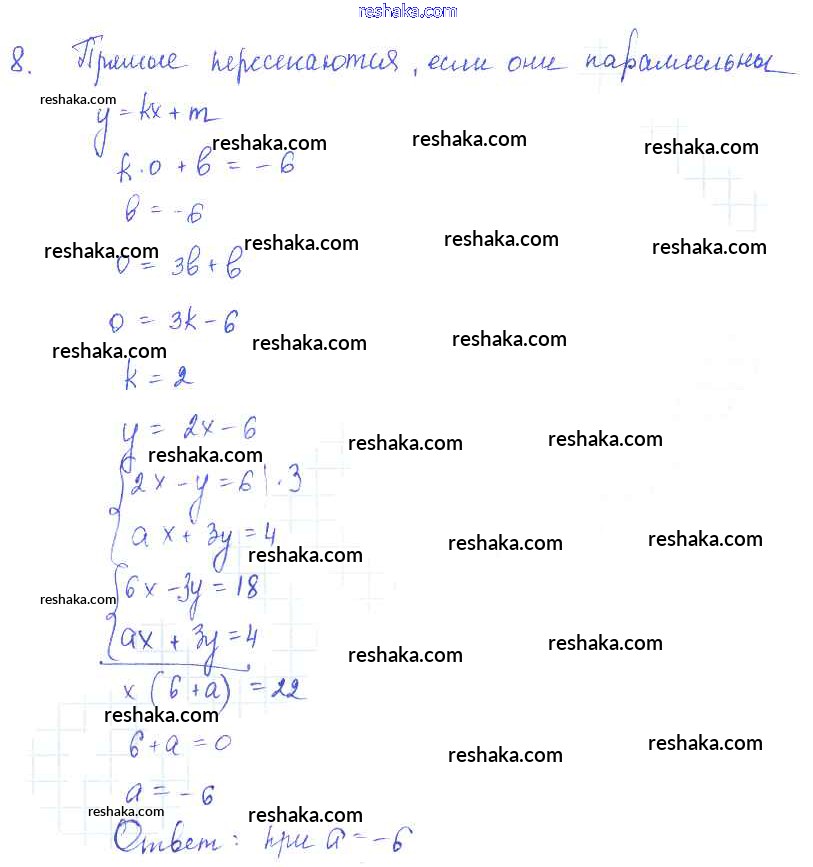 reshaka.com
8. Прямые пересекаются, если они параллельны
reshaka.com
y = kx + m
reshaka.com reshaka.com reshaka.com
k·0 + b = -6
b = -6
reshaka.com reshaka.com reshaka.com reshaka.com
0 = 3b + b
0 = 3k - 6
reshaka.com reshaka.com reshaka.com
k = 2
y = 2x - 6
reshaka.com reshaka.com reshaka.com
2x - y = 6 | · 3
ax + 3y = 4
reshaka.com reshaka.com reshaka.com
6x - 3y = 18
reshaka.com
ax + 3y = 4
reshaka.com reshaka.com
x (6 + a) = 22
reshaka.com
6 + a = 0
reshaka.com reshaka.com
a = -6
reshaka.com reshaka.com
Ответ: при a = -6